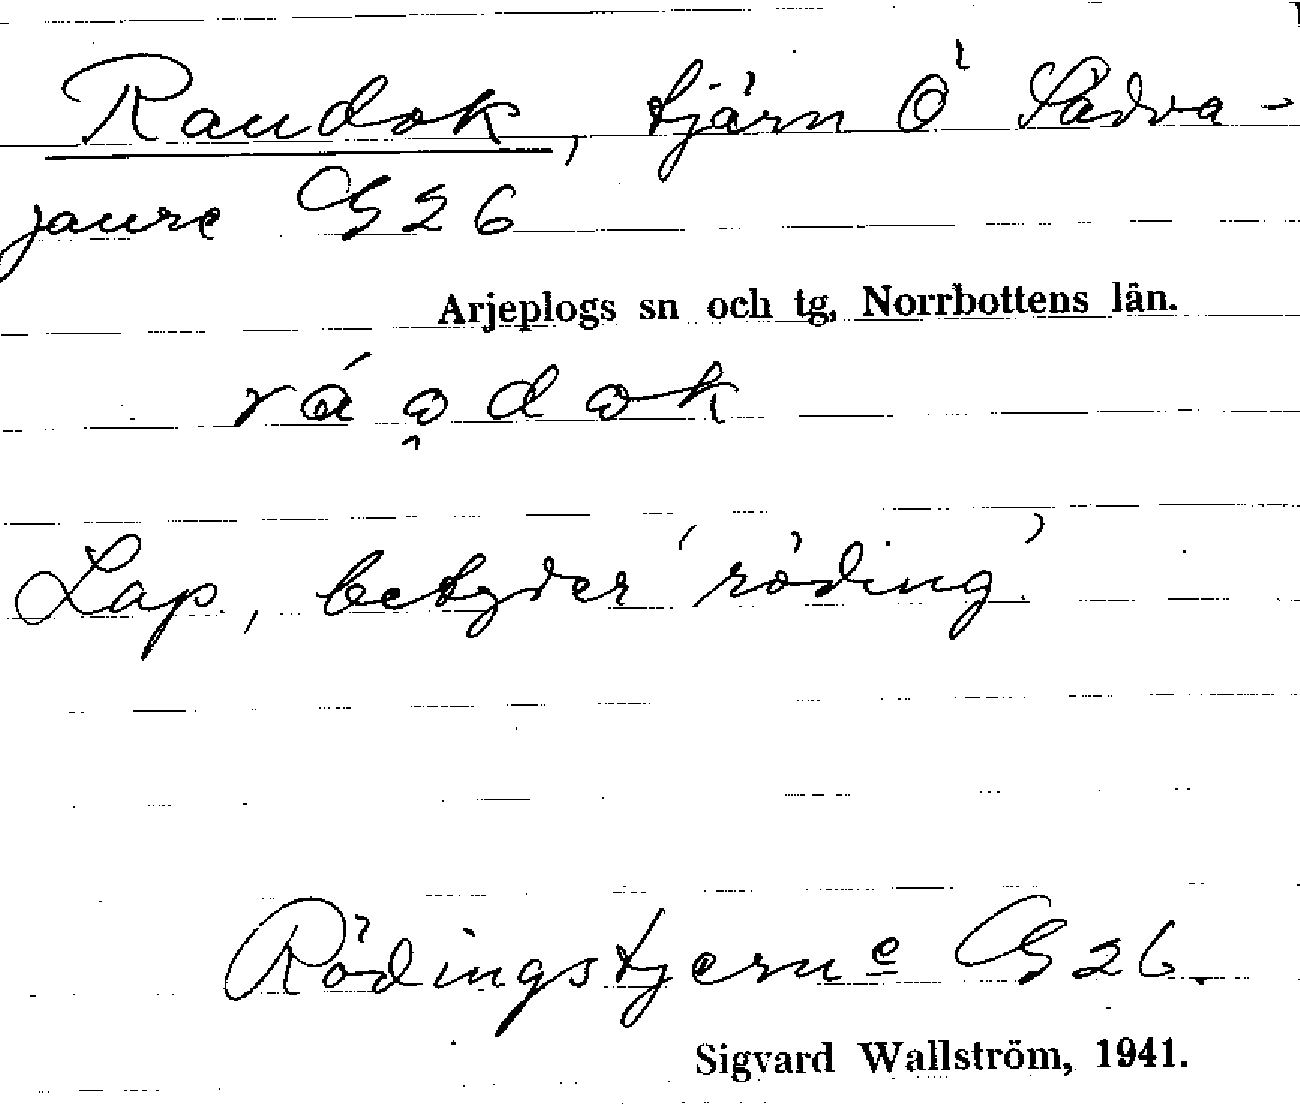 Raudok, tjärn Ö Sädva-
jaure G 26
Arjeplogs sn och tg, Norrbottens län.
ráo̯dok
Lap, betyder 'röding'
Rödingstjerne G 26.
Sigvard Wallström, 1941.